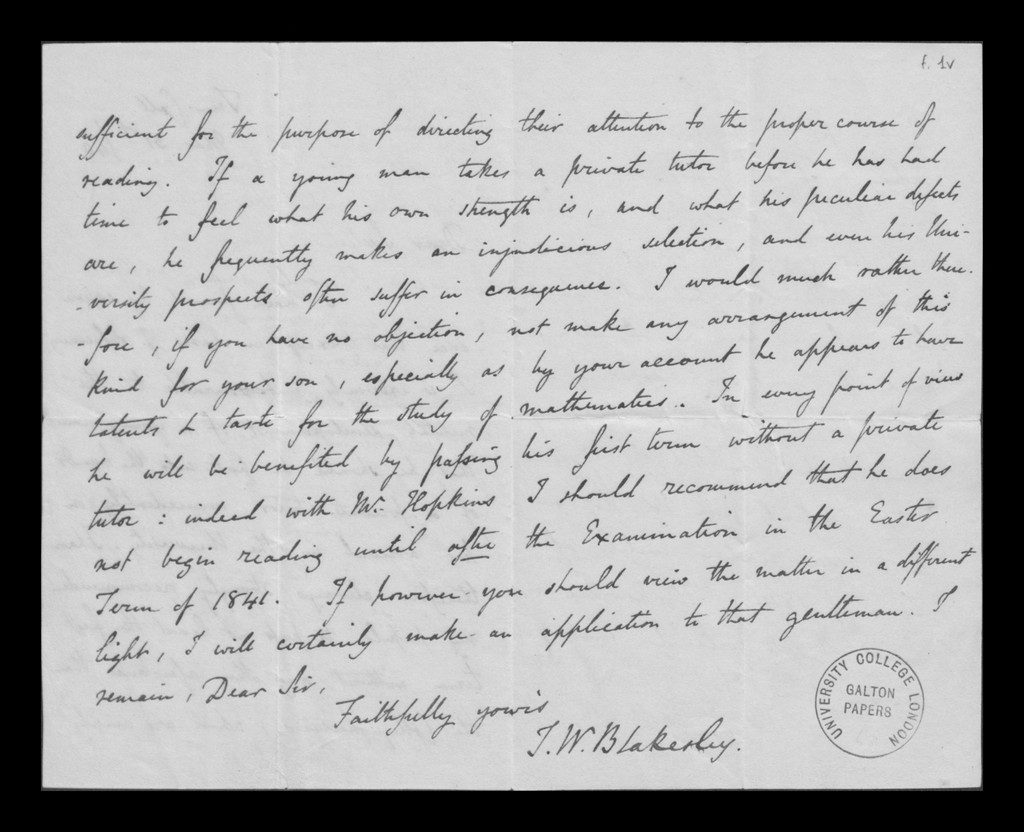 f. 1v
sufficient for the purpose of directing their attention to the proper course of
reading. If a young man takes a private tutor before he has had
time to feel what his own strength is, and what his peculiar defects
are, he frequently makes an injudicious selection, and even his Uni-
-versity prospects often suffer in consequence. I would much rather there-
-fore, if you have no objection, not make any arrangement of this
kind for your son, especially as by your account he appears to have
talents & taste for the study of mathematics. In every point of view
he will be benefited by passing his first term without a private
tutor: indeed with Mr. Hopkins I should recommend that he does
not begin reading until after the Examination in the Easter
Term of 1841. If however you should view the matter in a different
light, I will certainly make an application to that gentleman. I
remain, Dear Sir,
Faithfully yours
J. W. Blakesley.
UNIVERSITY COLLEGE LONDON
GALTON
PAPERS